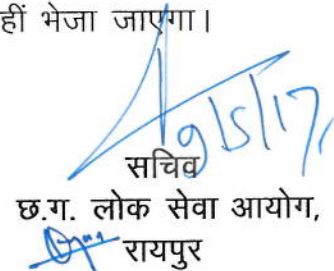 हीं भेजा जाएगा।
9/5/17
सचिव
छ.ग. लोक सेवा आयोग,
रायपुर